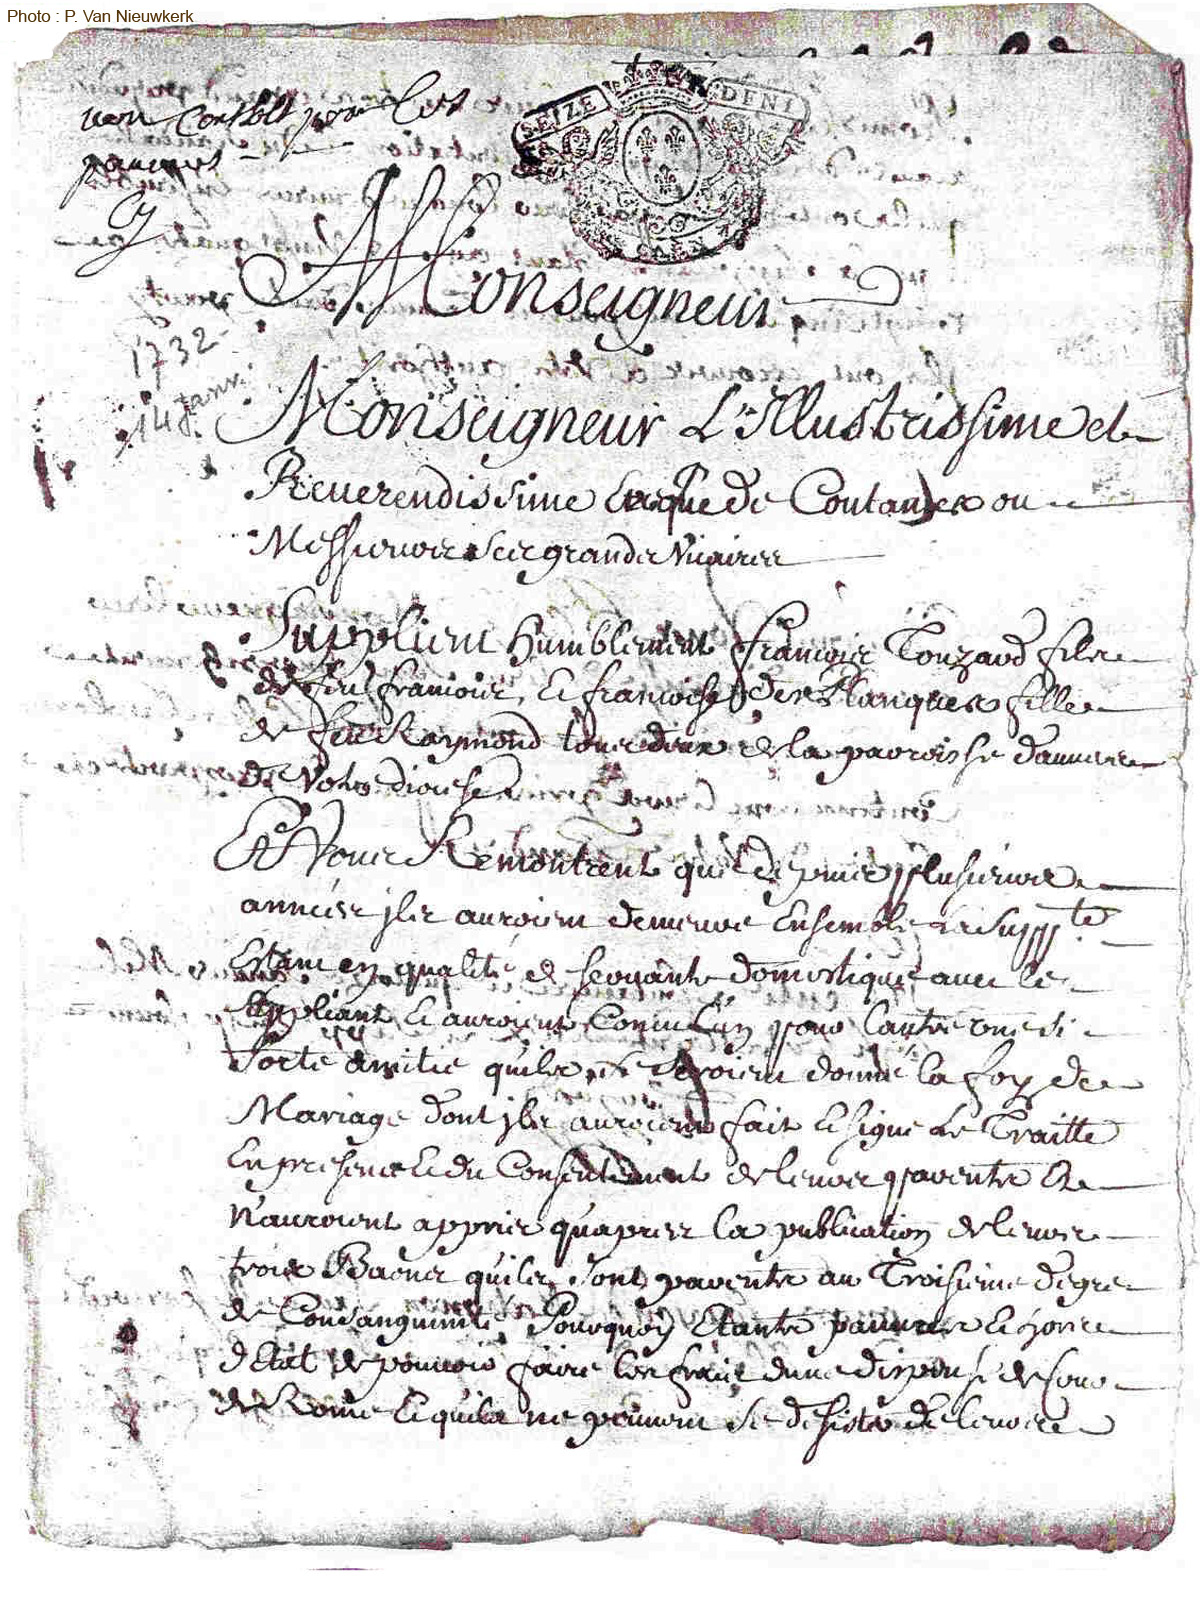 Photo : P. Van Nieuwkerk
SEIZE DENI
pour les
pauvres
Monseigneur
1732
14e janvr
Monseigneur L'Illustrissime et
Reuerendissime Euesque de Coutances ou
Messieurs ses grands Vicaires
Supplient humblement François Touzard fils
de feu françois, et françoise des Planques fille
de feu Raymond tous deux de la parroisse d'anneuille
de Votre diocese
Et Vous Remontrent que depuis plusieurs
années jls auroient demeuré Ensemble la Suppte
Estant en qualité de seruante domestique auec le
suppliant et auroient Conceu l'un pour l'autre une si
sorte amitié quils se seroient donné la foy de
Mariage dont jls auroient fait et signé le Traitté
En presence et du Consentement de leurs parents Et
N'auroient appris qu'apres la publication de leurs
trois Bacns quils sont parents au Troisieme degre
de Consanguinité Pourquoy Etants pauures et hors
d'Etat de pouuoir faire les frais d'une dispense de cour
de Rome et quils ne peuuent se desister de leurs